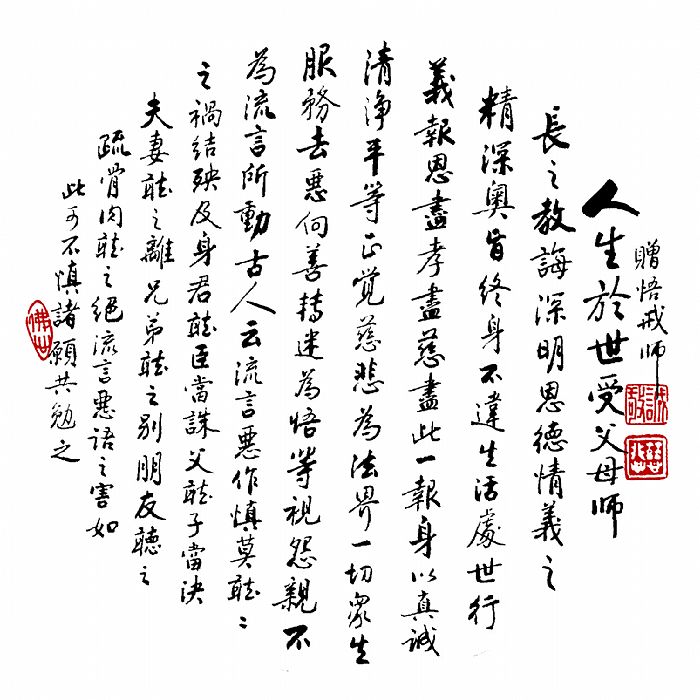 贈悟戒師
人生於世受父母師
長之教誨深明恩德情義之
精深奧旨終身不違生活處世行
義報恩盡孝盡慈盡此一報身以真誠
清淨平等正覺慈悲為法界一切眾生
服務去惡向善轉迷為悟等視怨親不
為流言所動古人云流言惡作慎莫聽〻
之禍結殃及身君聽臣當誅父聽子當決
夫妻聽之離兄弟聽之別朋友聽之
疏骨肉聽之絕流言惡語之害如
此可不慎諸願共勉之